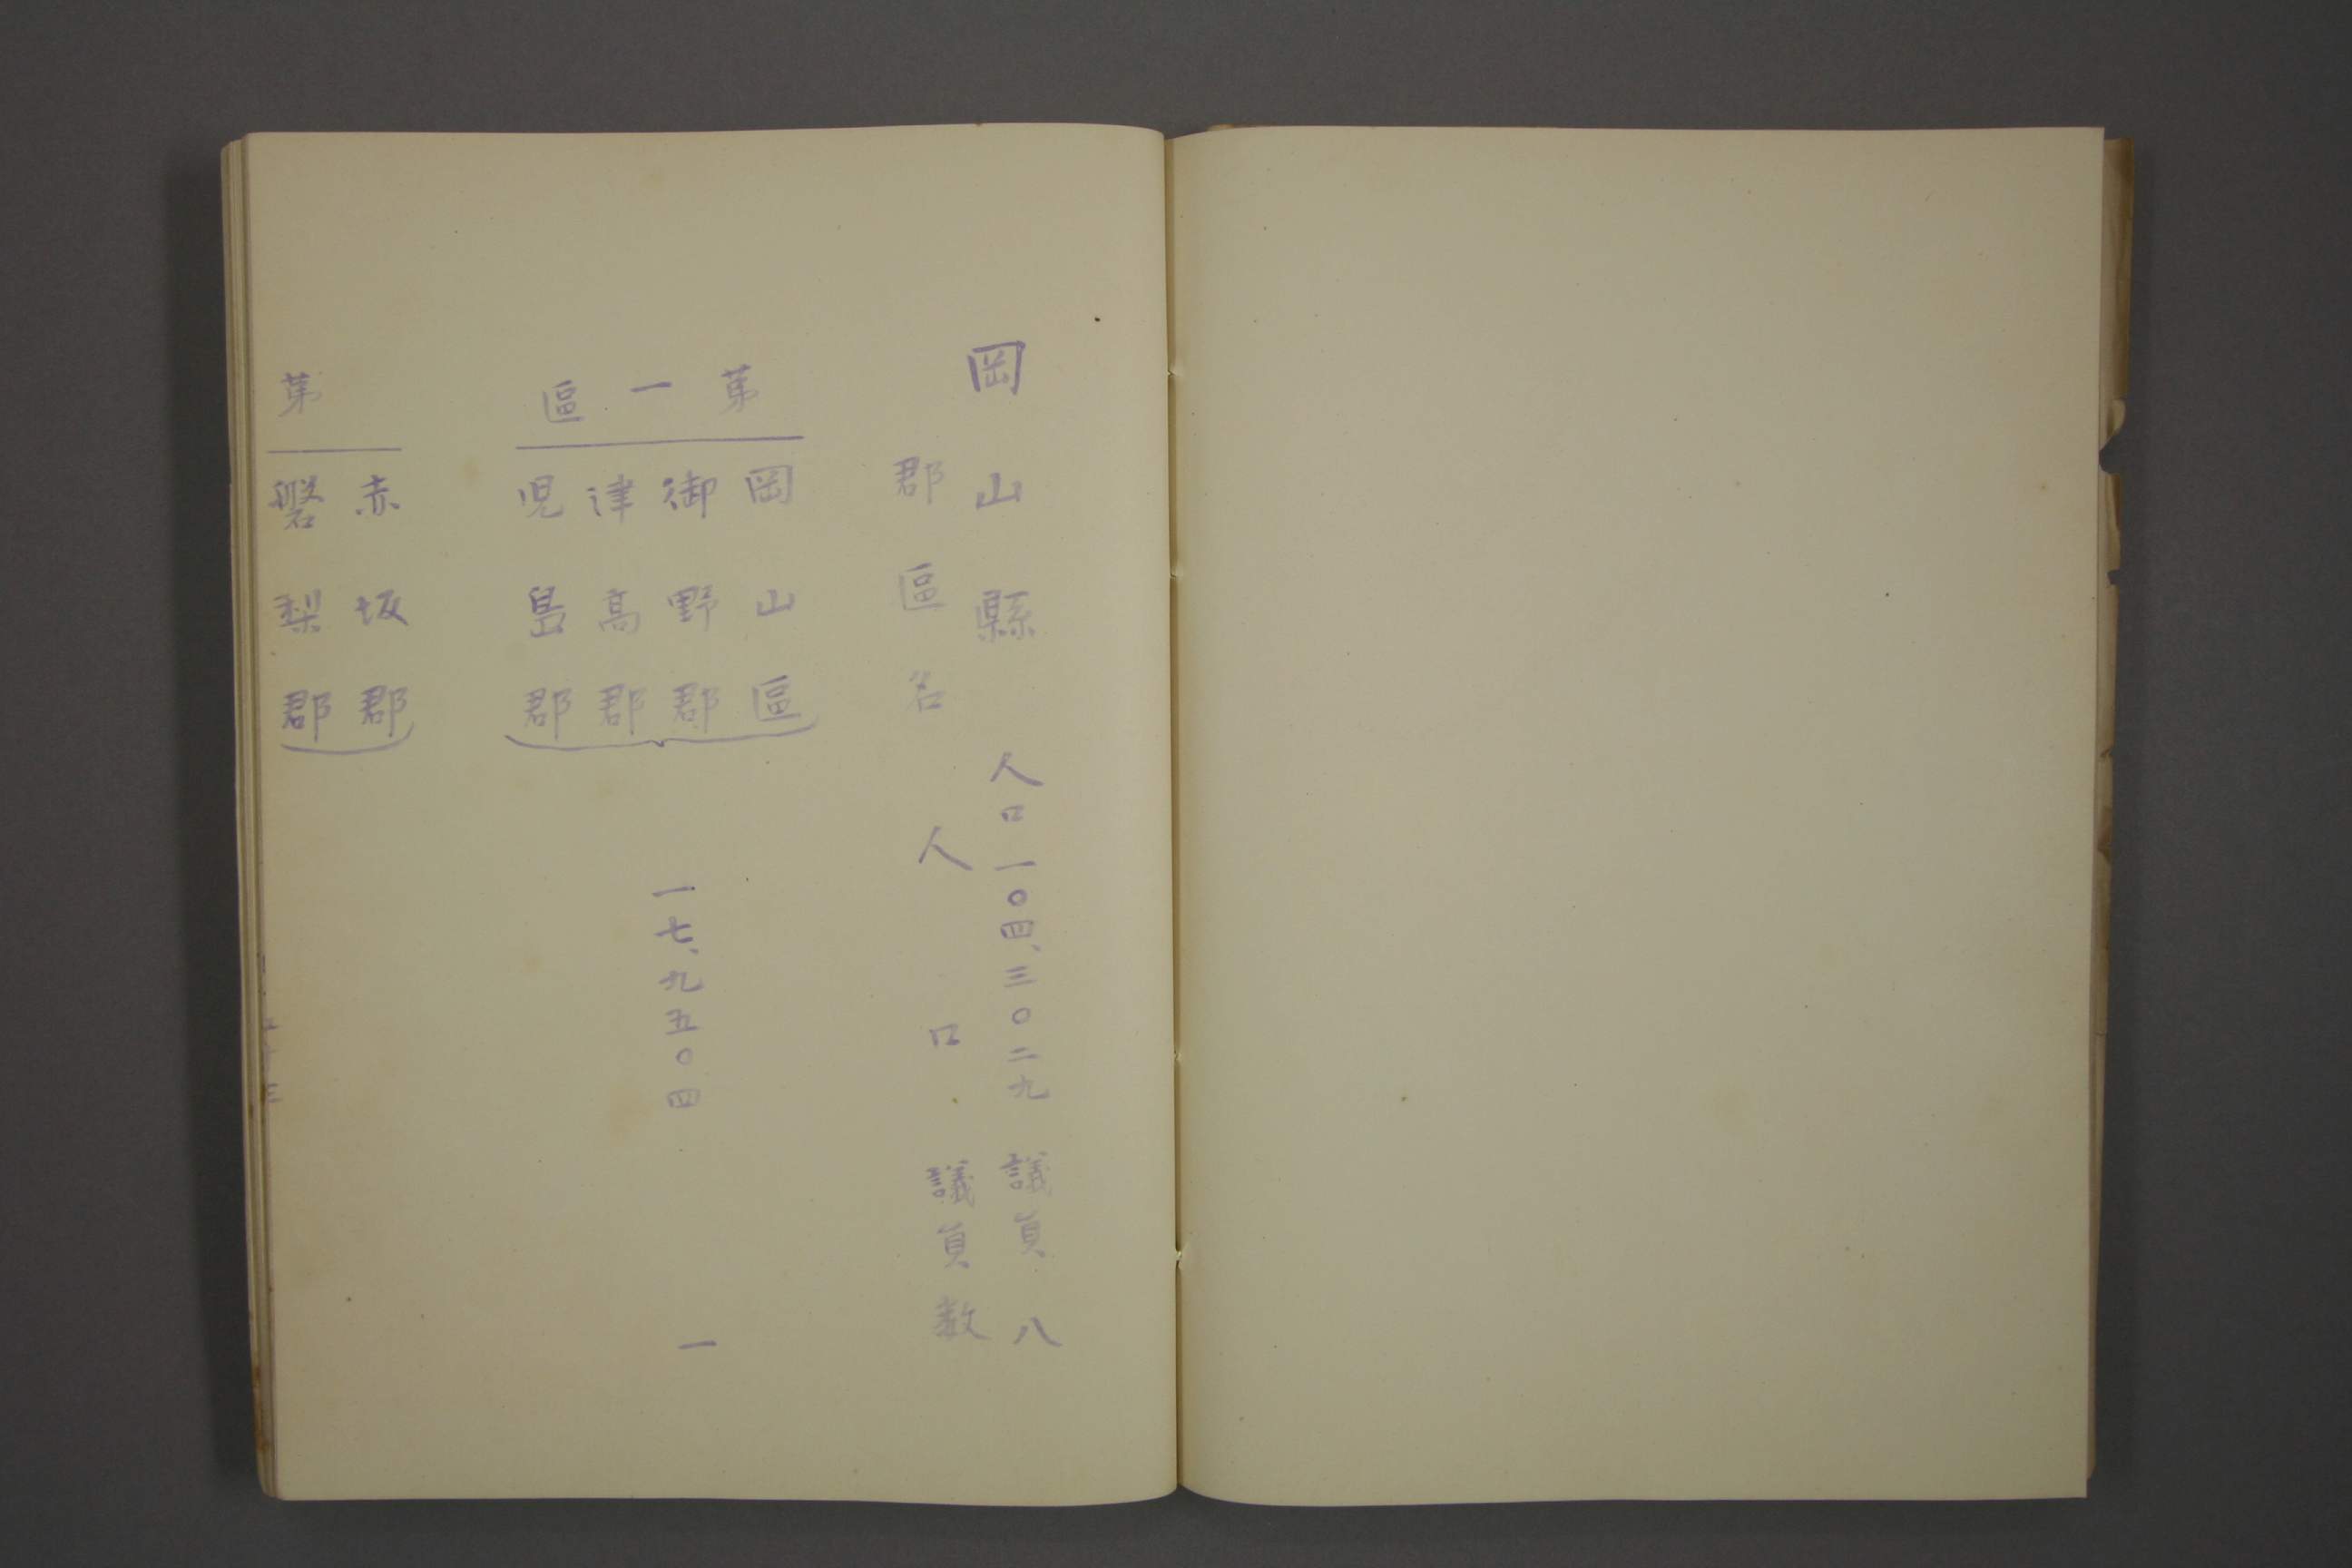 岡山縣 人口一〇四、三〇二九 議員 八
郡區名 人口 議員数
第一區
岡山區
御野郡
津高郡
児島郡
一七、九五〇四 一
第
赤坂郡
磐梨郡